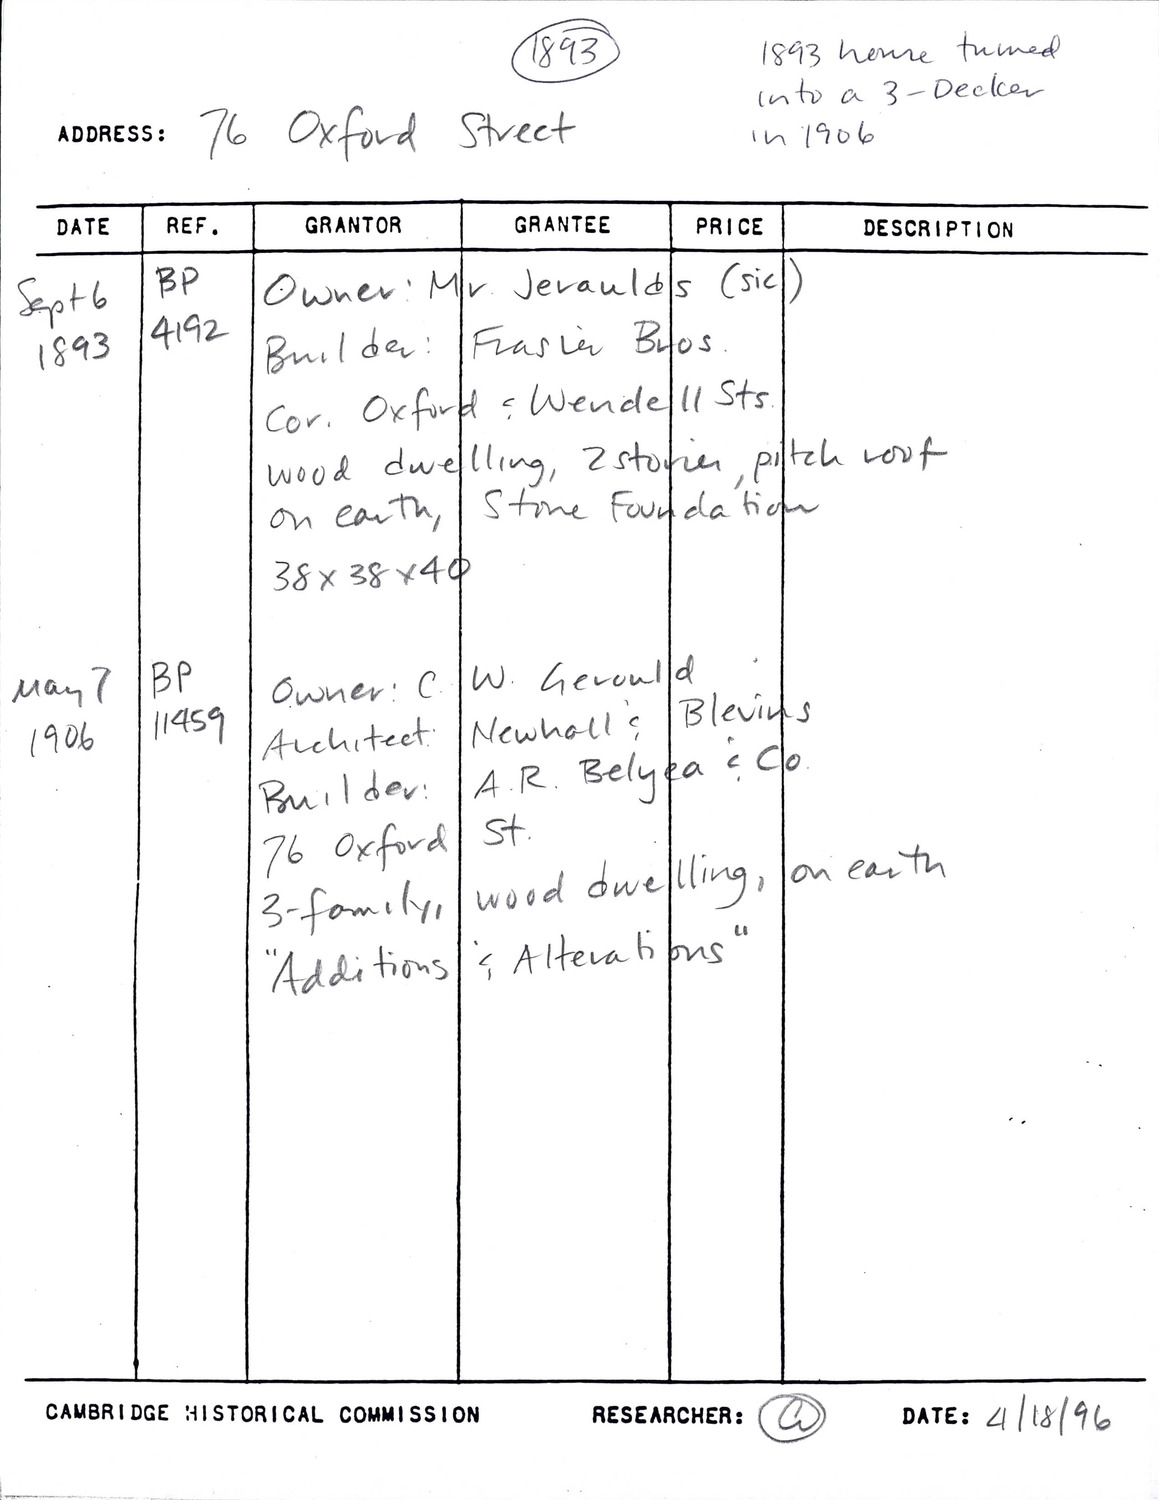 1893
1893 house turned
into a 3-Decker
in 1906
ADDRESS: 76 Oxford Street
DATE REF. GRANTOR GRANTEE PRICE DESCRIPTION
Sept 6 BP Owner: Mr Jeraulds (sic)
1893 4192 Builder: Frasier Bros.
Cor. Oxford & Wendell Sts.
wood dwelling, 2 stories, pitch roof
on earth, Stone Foundation
38 x 38 x 40
May 7 BP Owner: C. W. Gerould
1906 11459 Architect: Newhall & Blevins
Builder: A.R. Belyea & Co.
76 Oxford St.
3-family, wood dwelling, on earth
"Additions & Alterations"
CAMBRIDGE HISTORICAL COMMISSION RESEARCHER: DATE: 4/18/96